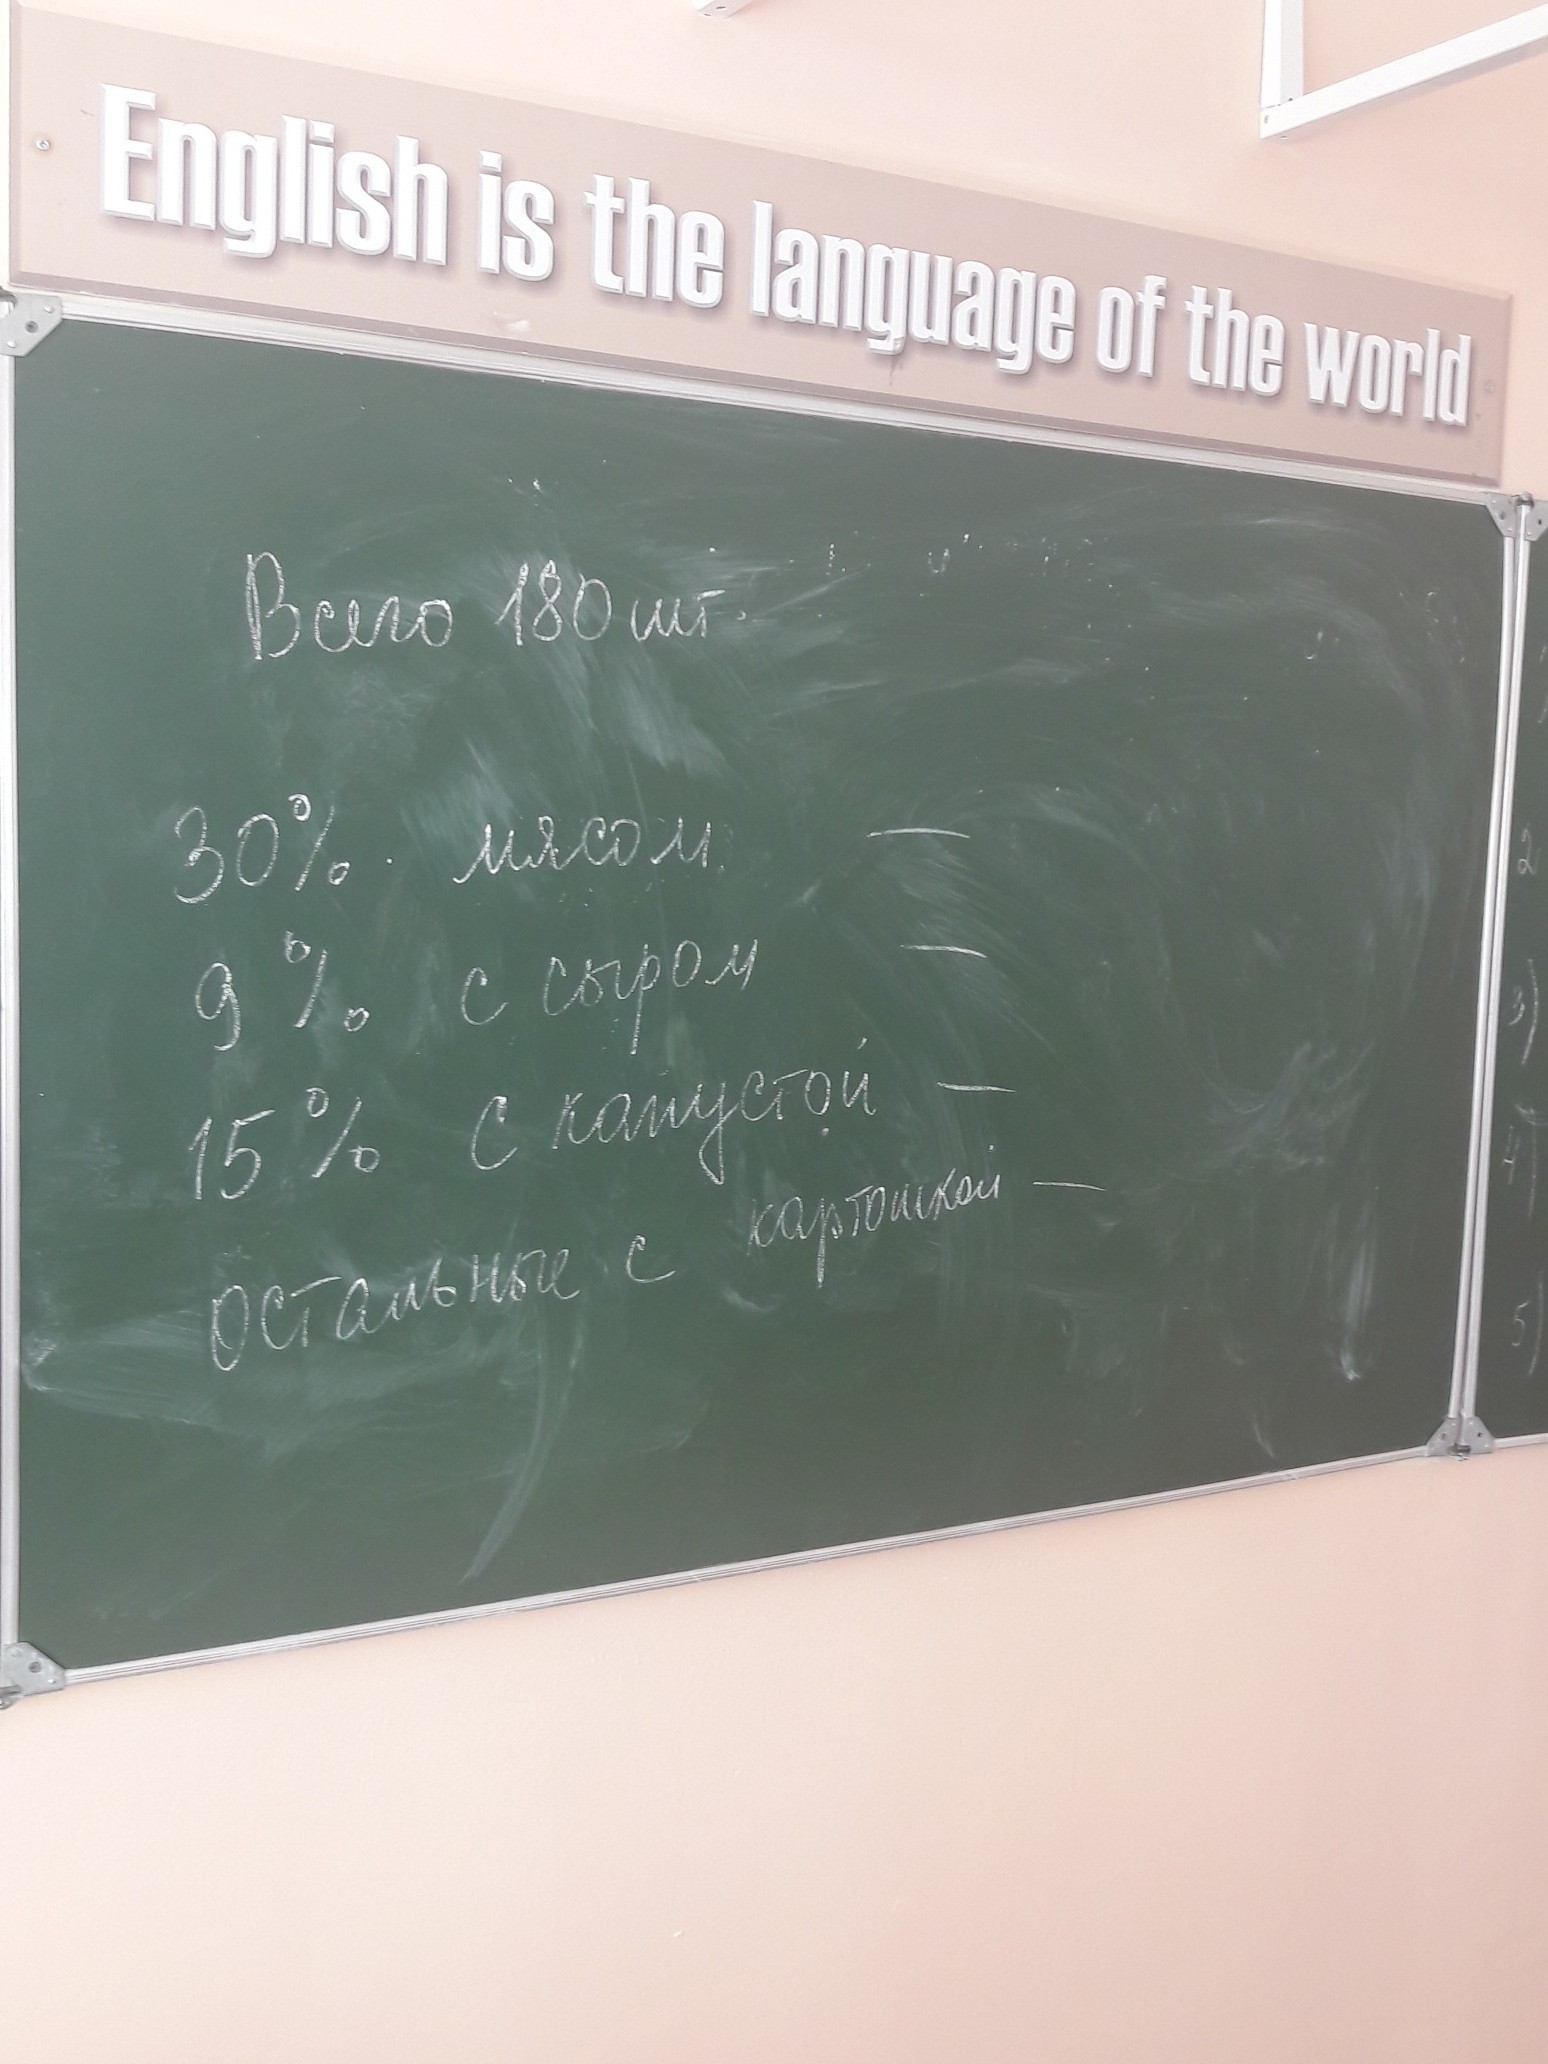 English is the language of the world
Всего 180 шт.
30% мясом —
9% с сыром —
15% с капустой —
остальные с картошкой —
2
3)
4)
5)